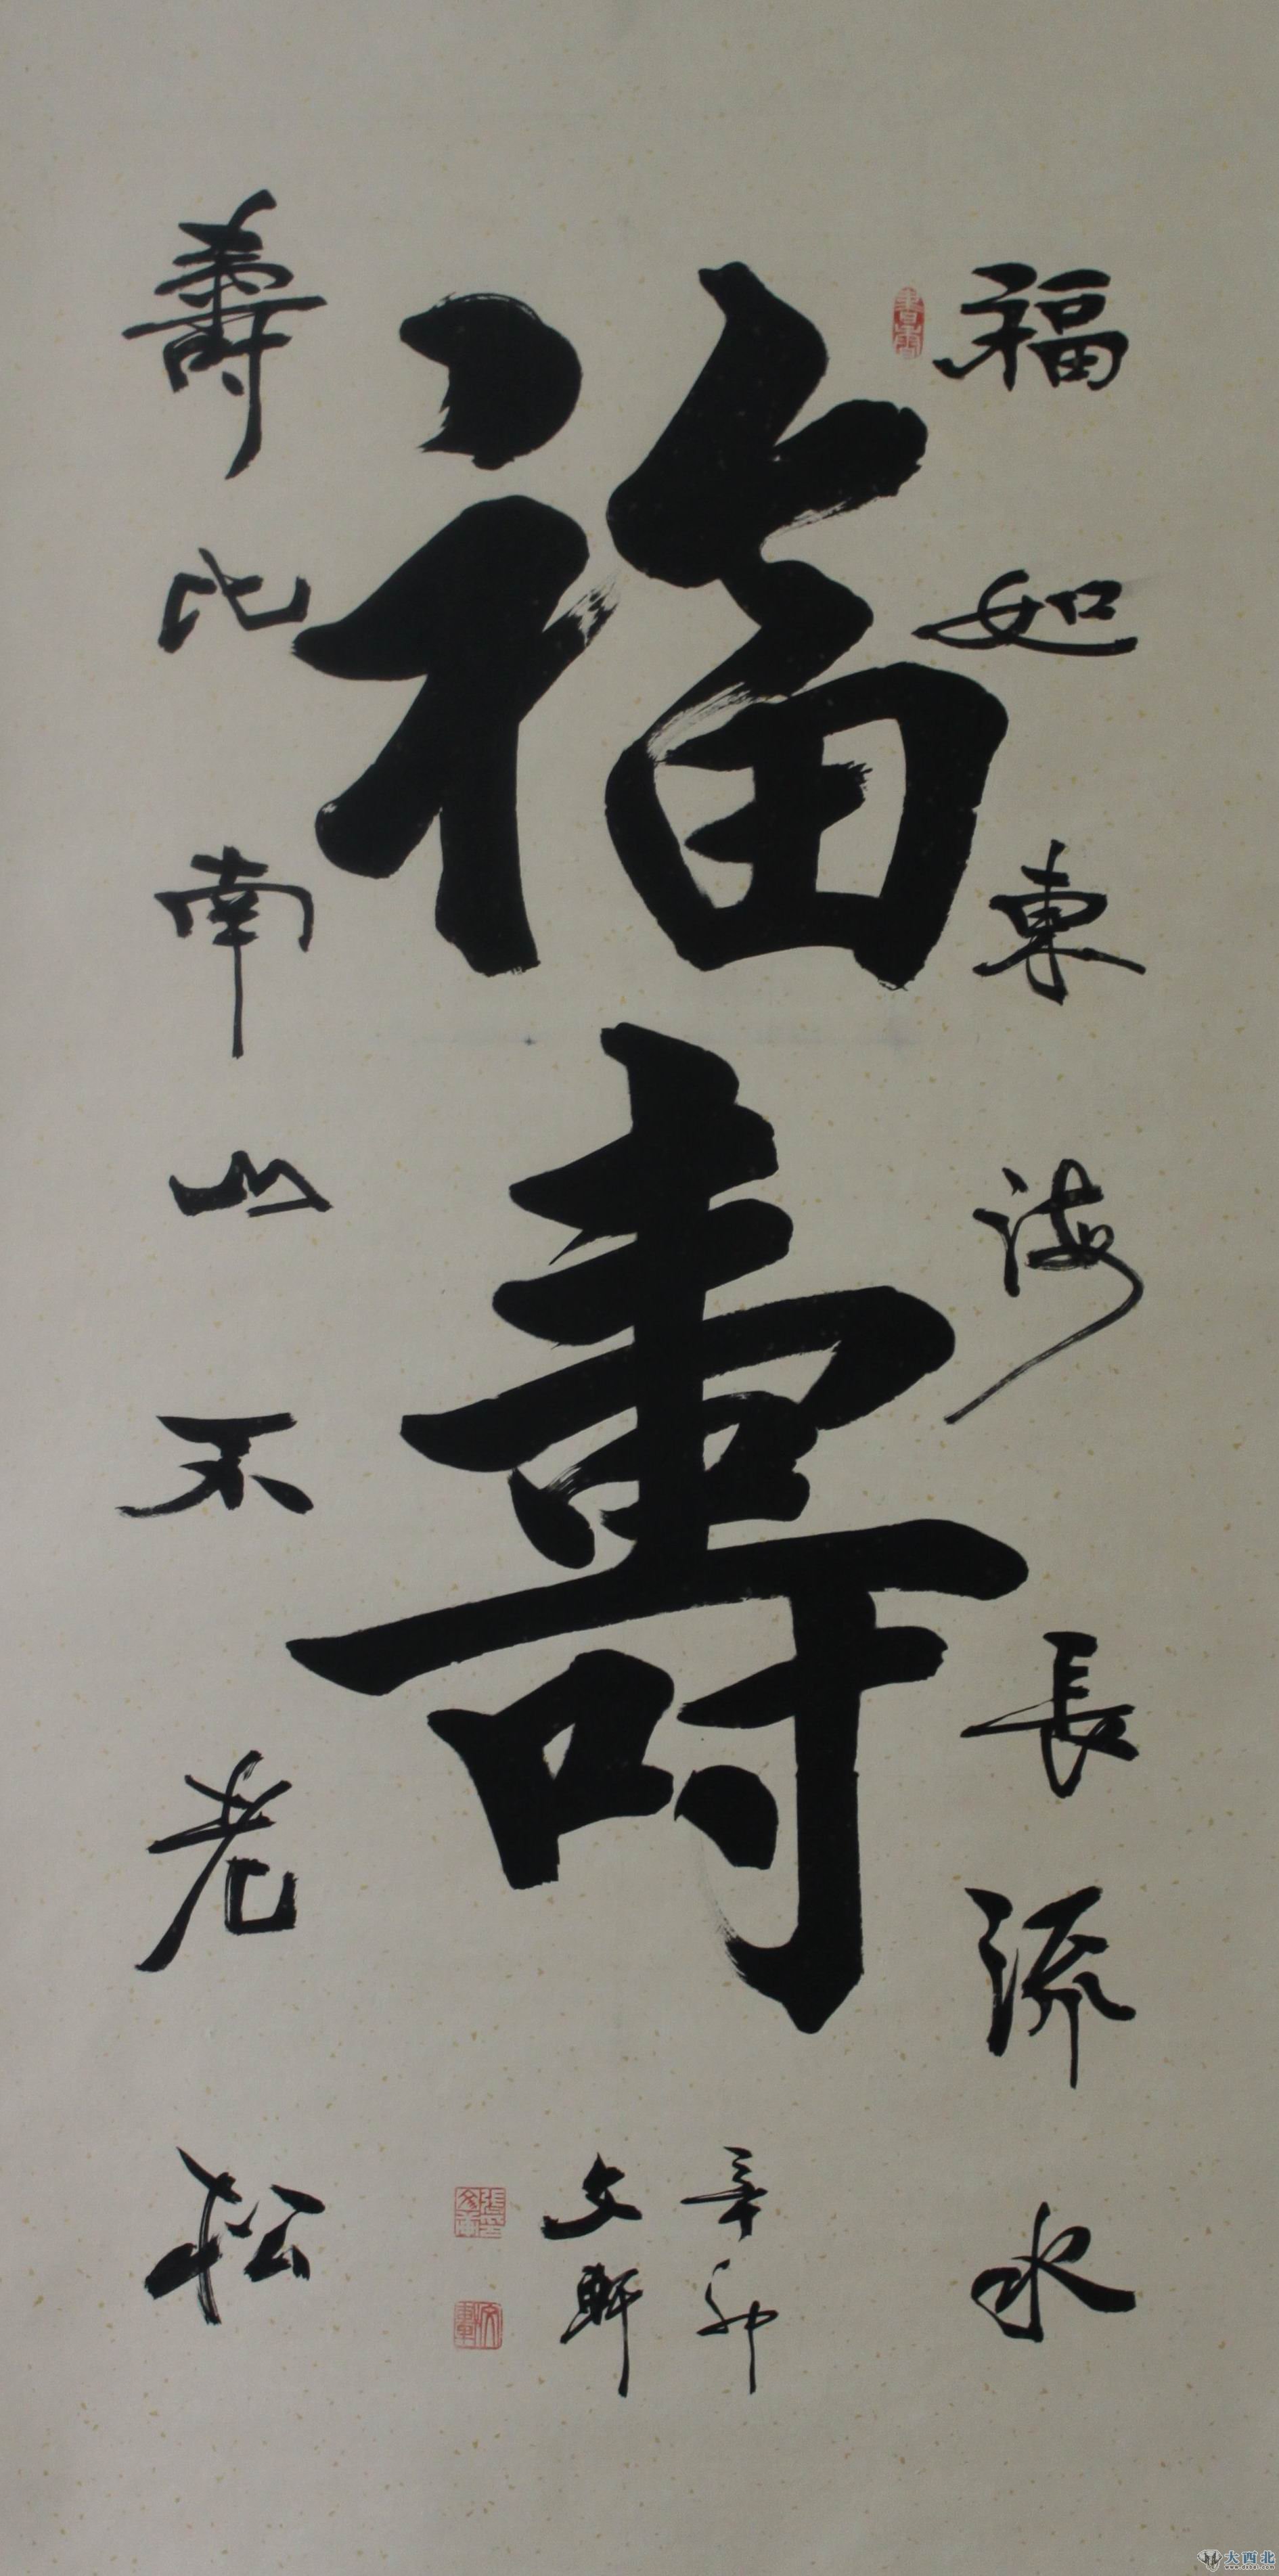 福如東海長流水
福壽
壽比南山不老松
辛卯
文軒
書香
大西北